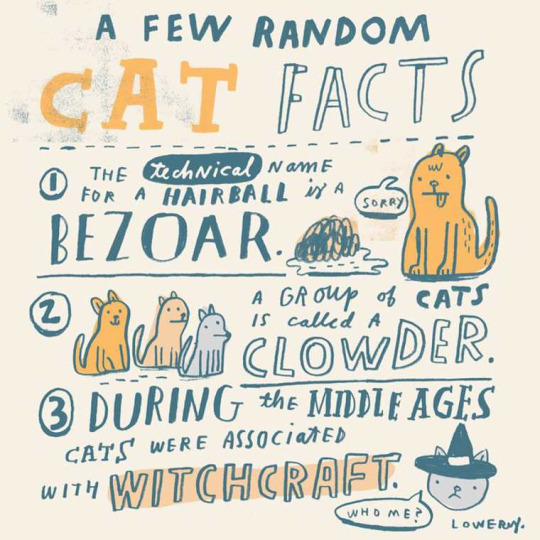 A FEW RANDOM
CAT FACTS
1 THE technical NAME
FOR A HAIRBALL is A
BEZOAR.
SORRY
2 A GROUP of CATS
IS called A
CLOWDER.
3 DURING the MIDDLE AGES
CATS WERE ASSOCIATED
WITH WITCHCRAFT.
WHO ME?
LOWERY.